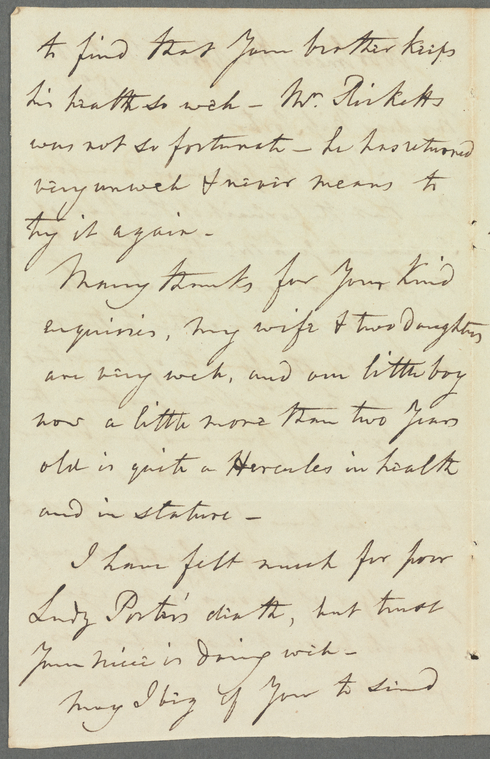 to find that Your brother keeps
his health so well – Mr. Ricketts
was not so fortunate – he has returned
very unwell & never means to
try it again –
Many thanks for Your Kind
enquiries, my wife & two Daughters
are very well, and our little boy
now a little more than two Years
old is quite a Hercules in health
and in stature –
I have felt much for poor
Lady Porter's death, but trust
Your niece is Doing well –
May I beg of You to send